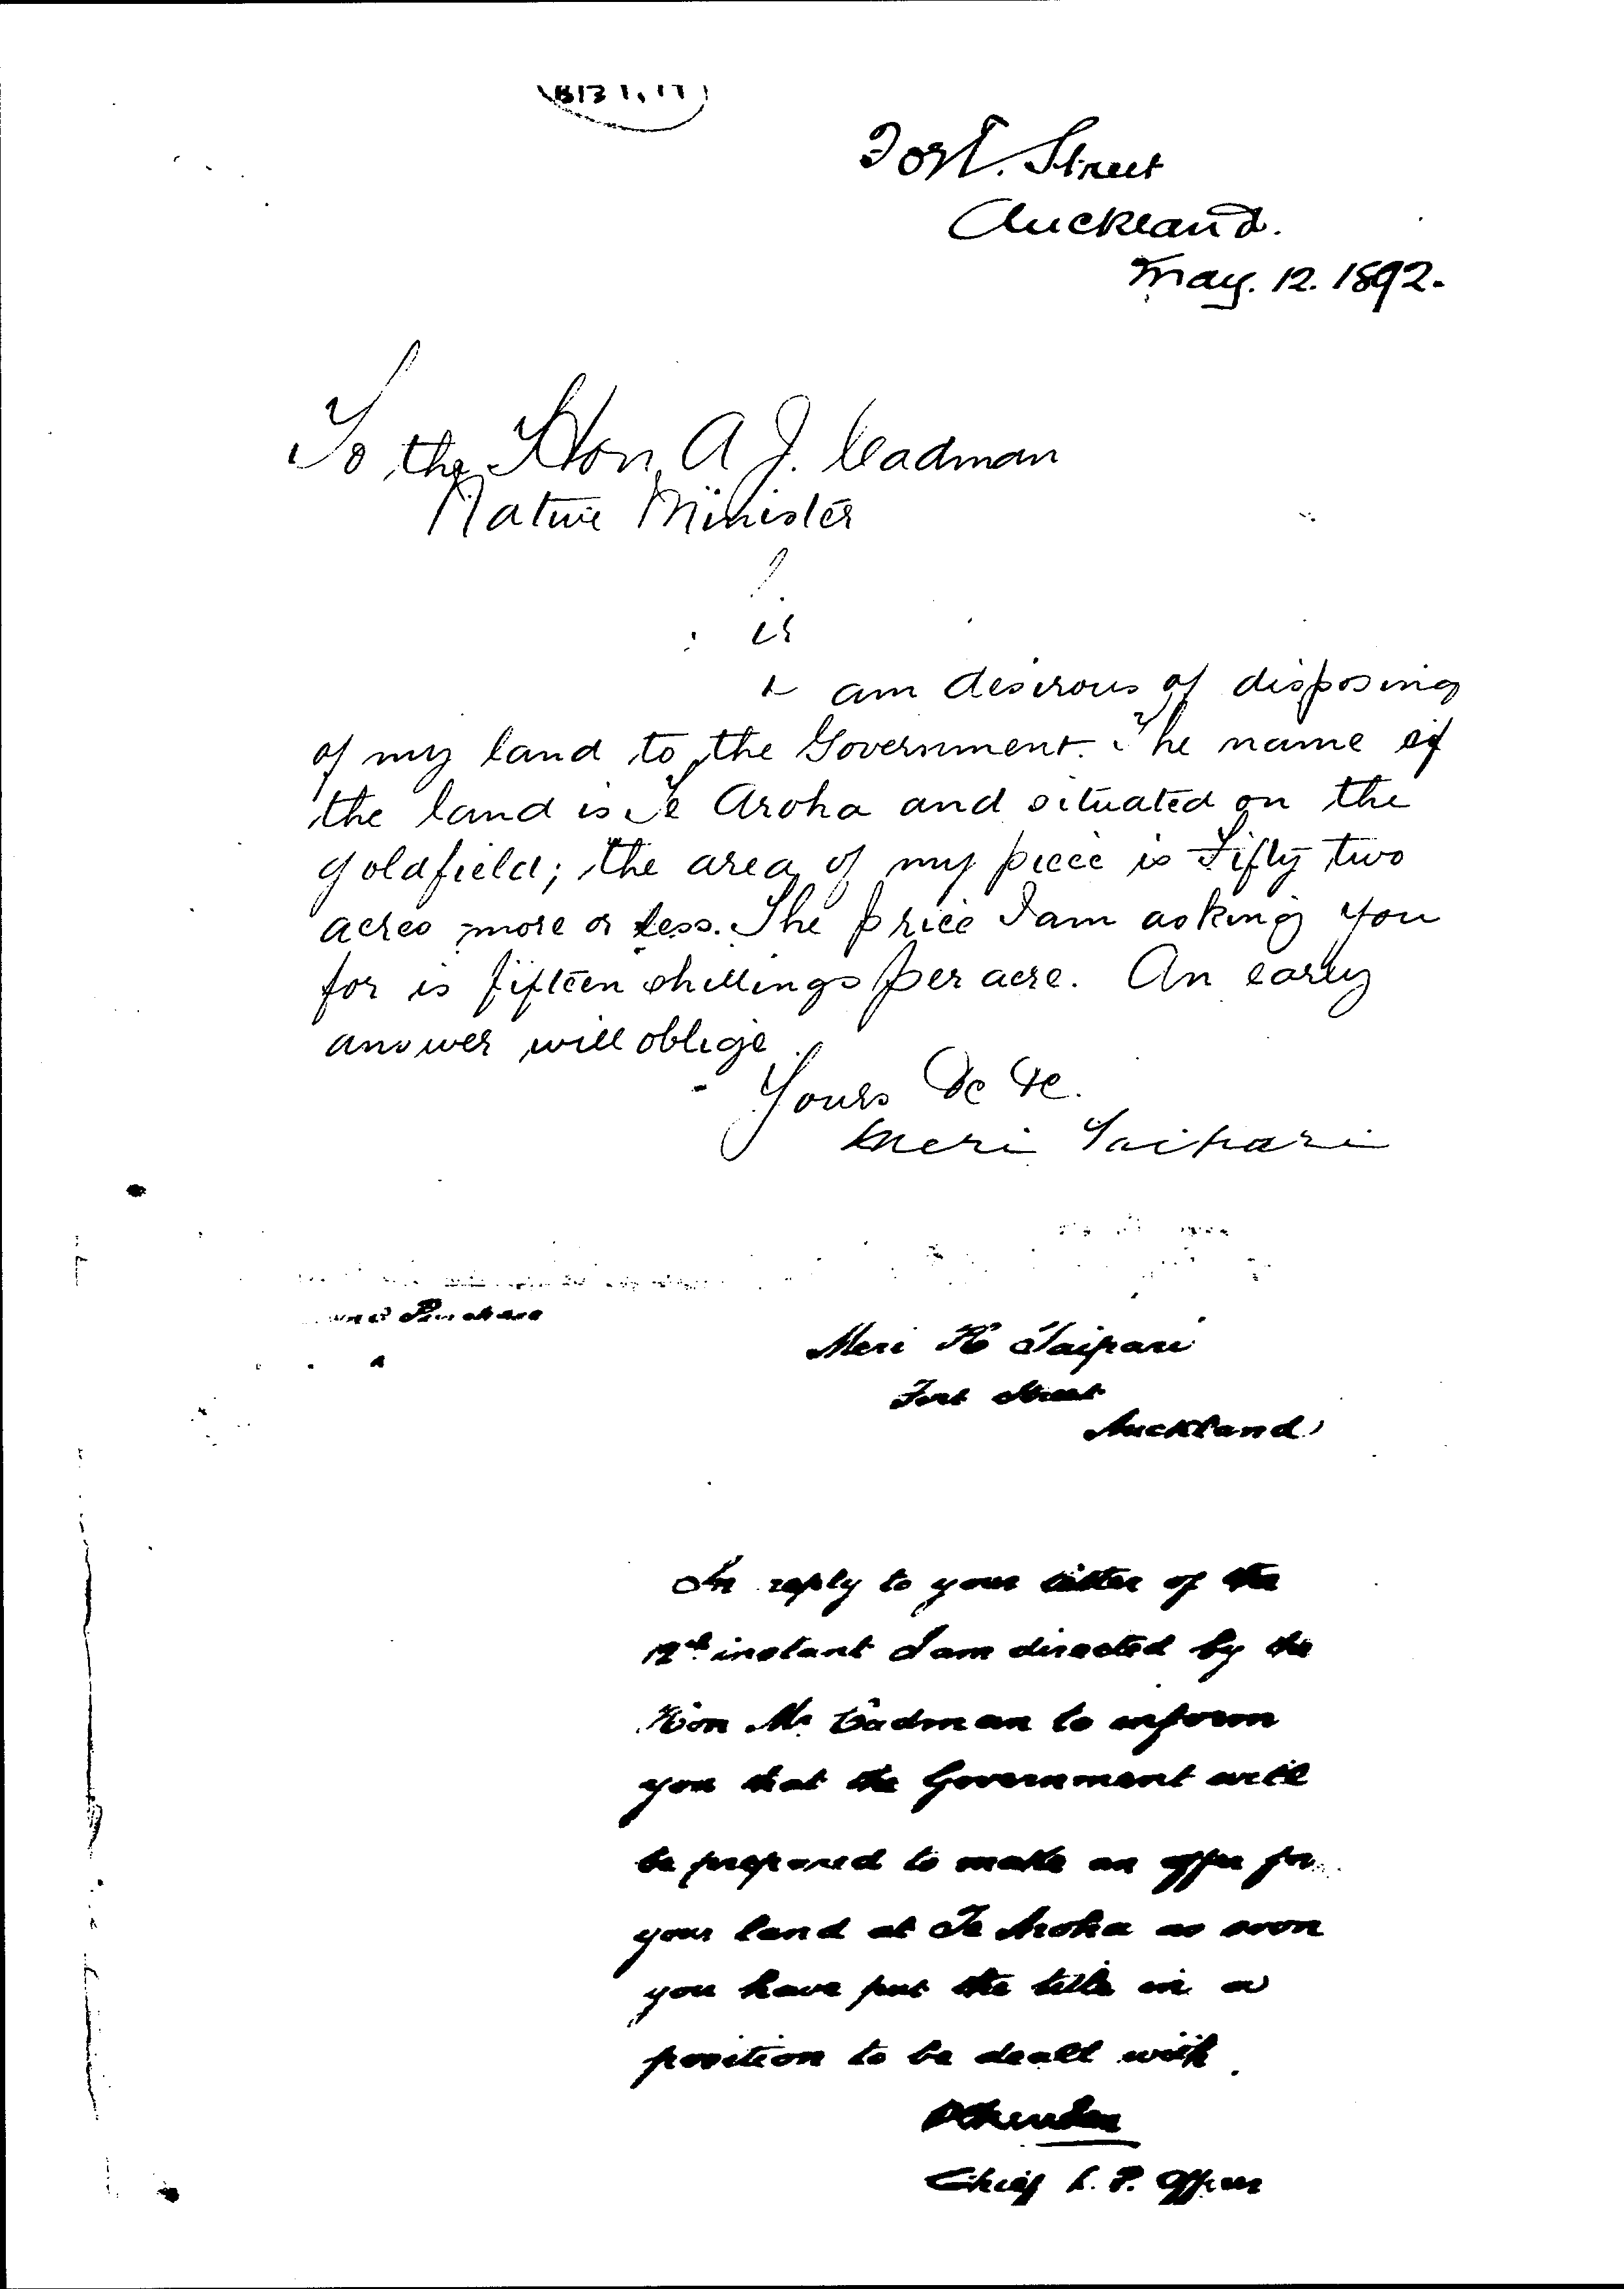 Fort. Street
Auckland.
May. 12. 1892.
To the Hon A J. Cadman
Native Minister
am desirous of disposing
of my land to the Government. The name of
the land is Te Aroha and situated on the
goldfield; the area of my piece is Fifty two
acres more or less. The price I am asking you
for is fifteen shillings per acre. An early
answer will oblige
Yours &c &c.
Meri Taipari
Purchase
Meri H Taipari
Fort Street
Auckland
In reply to your letter of the
12th instant I am directed by the
Hon Mr Cadman to inform
you that the Government will
be prepared to make an offer for
your land at Te Aroha as soon
you have put the title in a
position to be dealt with
Chief L. P. Officer